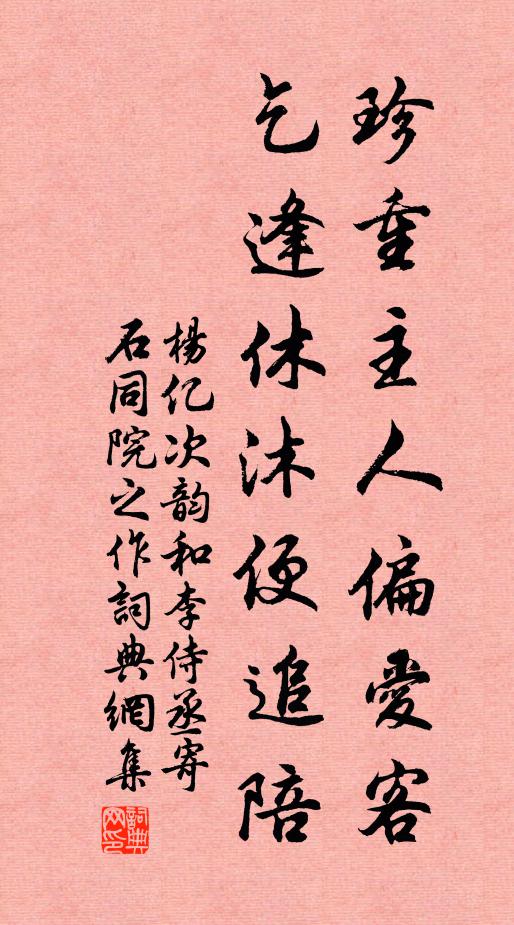 珍重主人偏愛客
乞逢休沐便追陪
楊億次韵和李侍丞寄
石同院之作詞典網集
詞典网印